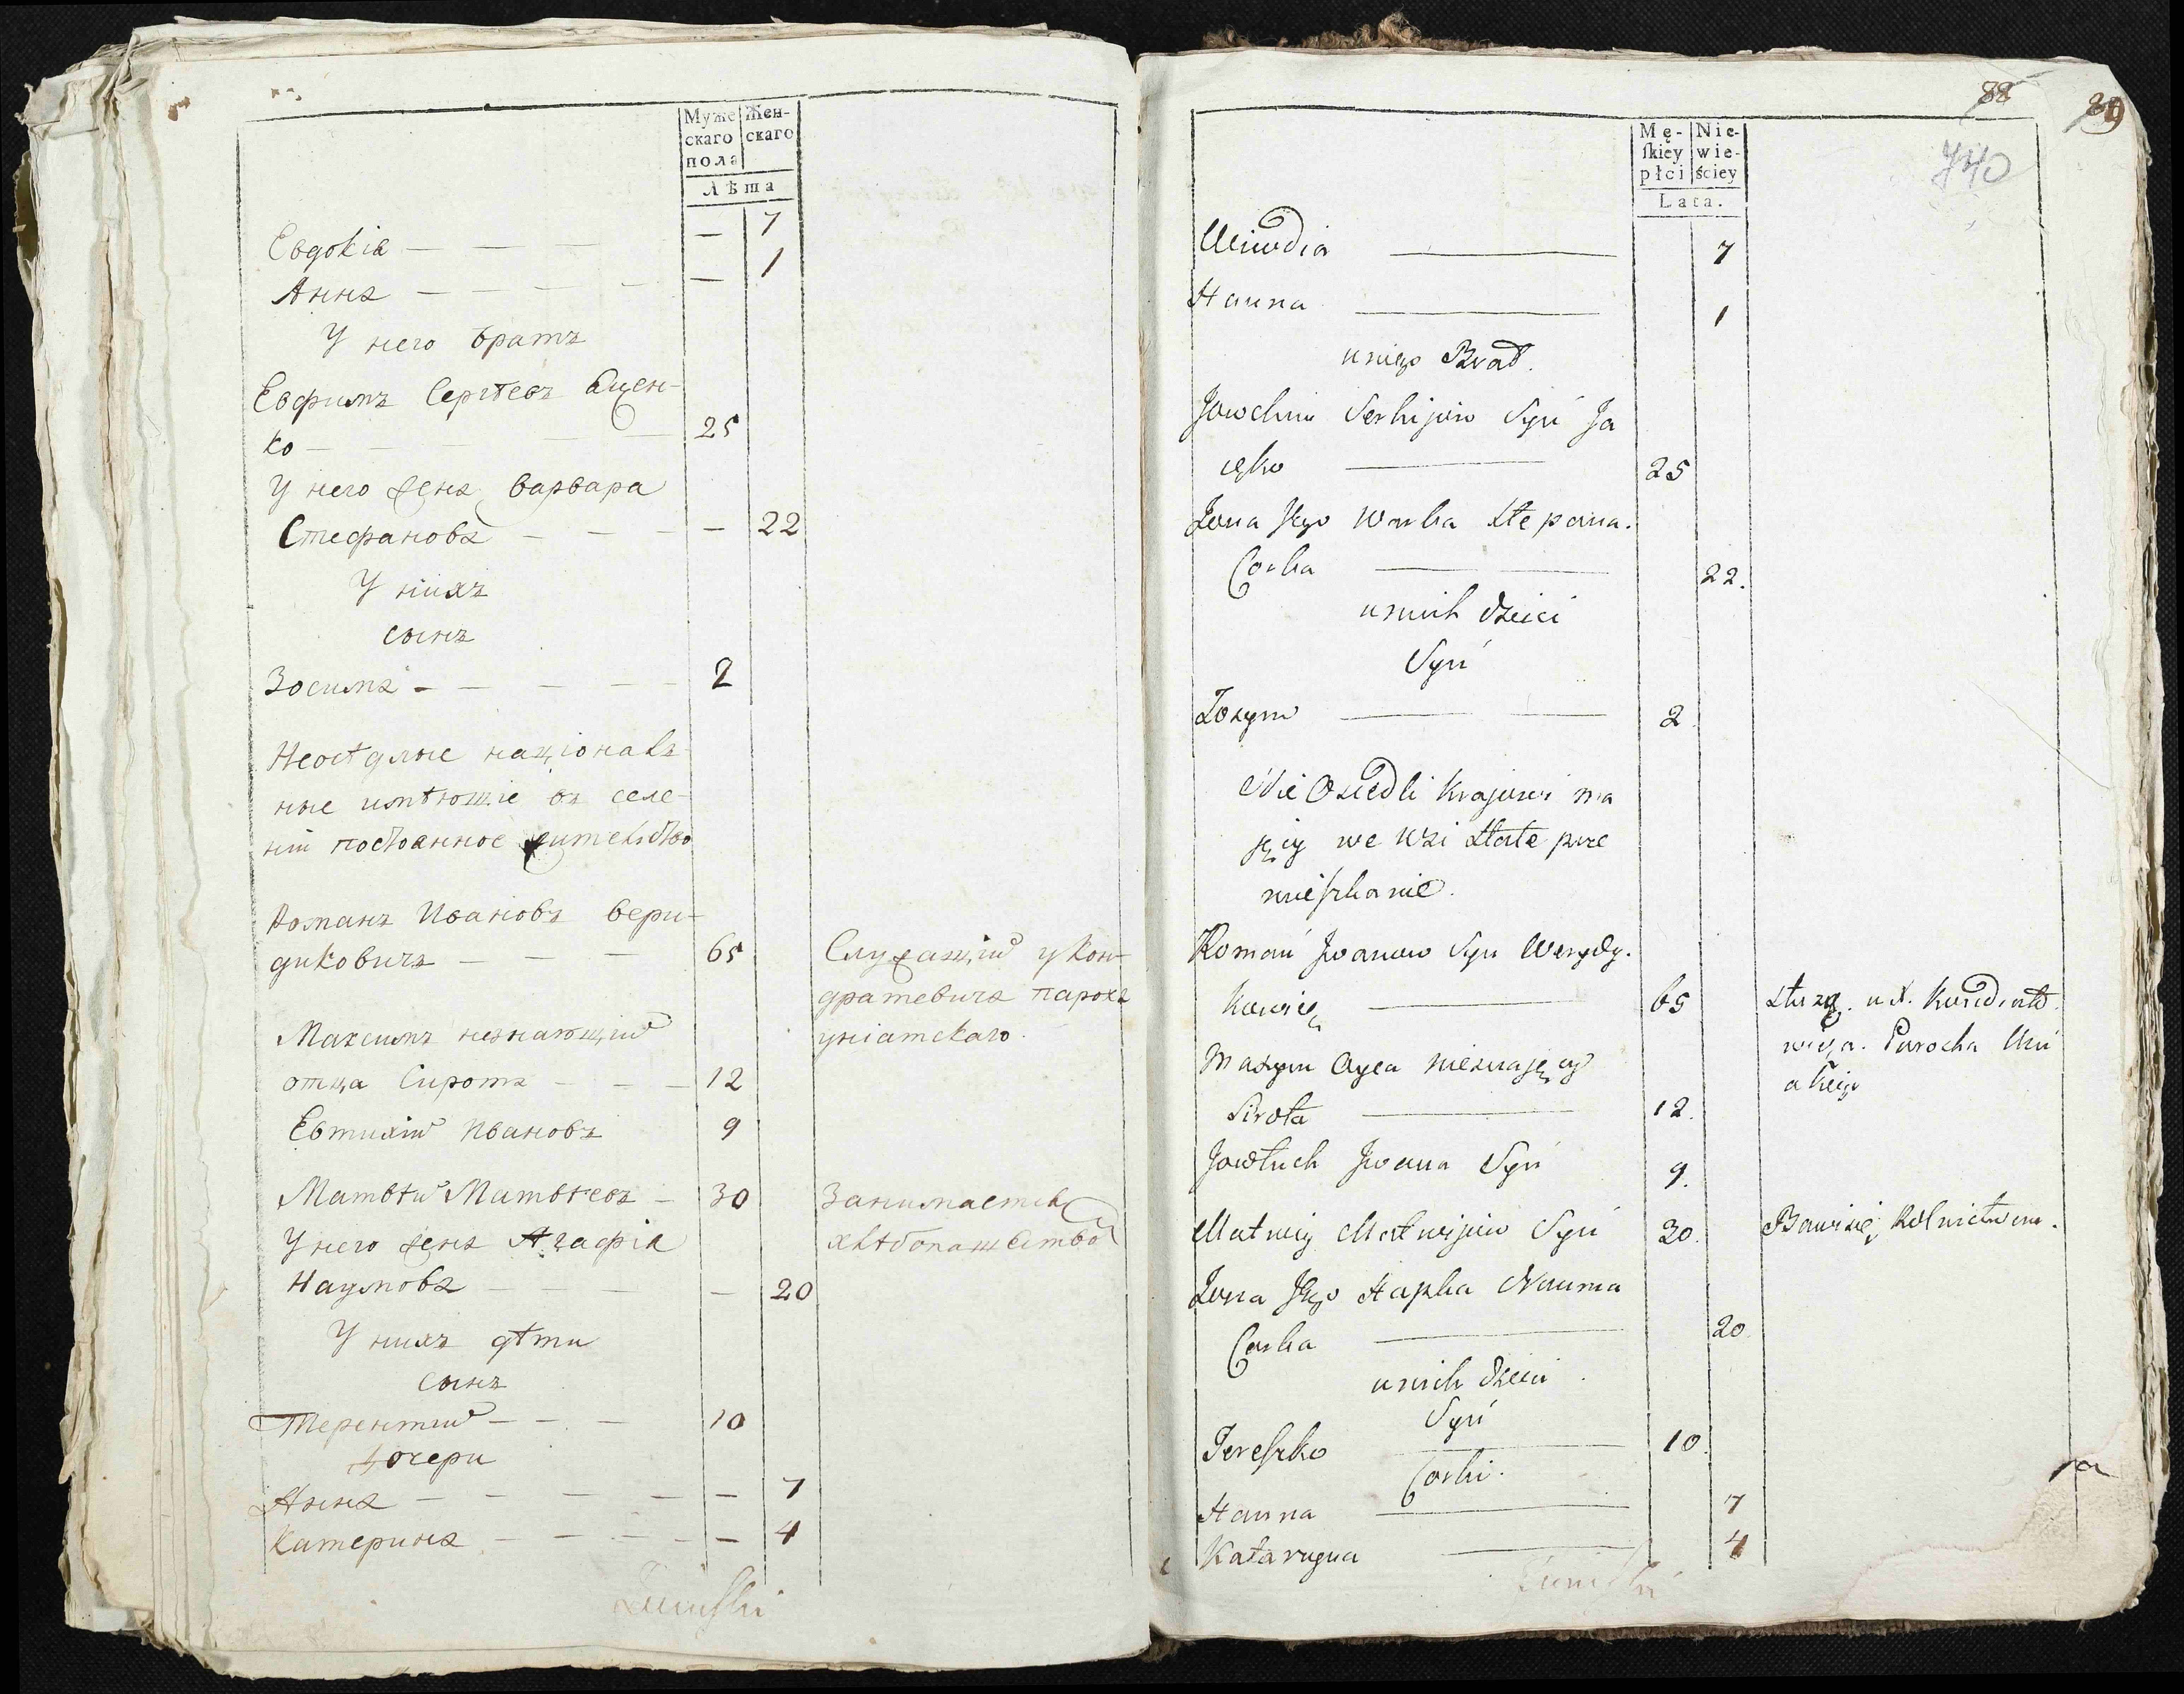 Муже
скаго
пола
Жен-
скаго
Лѣта
Евдокіа — — — — 7
Анна — — — — — 1
У него братъ
Евфимъ Сергѣевъ Яцен-
ко — — 25
У него жена Варвара
Стефанова — — — — 22
У нихъ
сынъ
Зосима — — — — 2
Неосѣдлые націонал-
ные имѣющіе въ селе-
ніи постоянное жителство
Романъ Ивановъ Вери-
диковичъ — — — 65
Служащій у Кон-
дратевича пароха
уніатскаго.
Максимъ незнающій
отца Сирота — — — 12
Евтихій Ивановъ 9
Матвѣй Матвѣевъ — 30
Занимается
хлѣбопашством
У него жена Агафіа
Наумова — — — — 20
У нихъ дѣти
сынъ
Терентий — — — 10
дочери
Анна — — — — — 7
Катерина — — — — — 4
88
89
740
Mę-
skiey
płci
Nie-
wie-
ściey
Lata.
7
Hanna 1
u niego Brat.
Jowchim Serhijow Syn Ja
cęko 25
Żona Jego Warka Stepana.
Corka 22.
u nich dzieci
Syn
Zosym 2
Nie Osiedli Krajowi ma
jęcy we Wsi State prze
mieszkanie.
Roman Iwanow Syn Werydy.
kowicz 65
Służę. u X. Kondrato
wicza. Parocha Uni
atskiego
Maxym Oyca nieznajęcy
Sirota 12.
Jowtuch Iwana Syn 9.
Matwiy Matwijow Syn 30.
Bawi się Rolnictwem.
Żona Jego Hapka Nauma
Corka 20
u nich dzieci
Syn
Tereszko 10.
Corki.
Hanna 7
Katarzyna 4